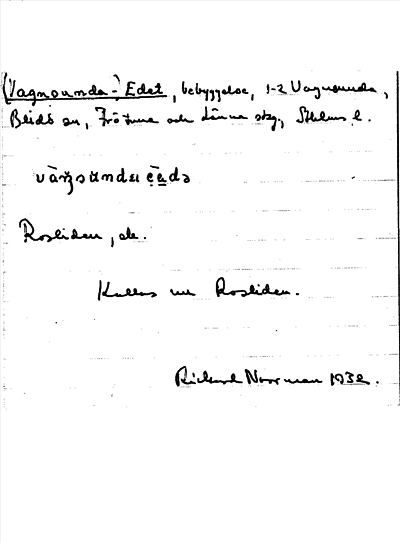 (Vagnsunda-) Edet, bebyggelse, 1-2 Vagnsunda,
Blidö sn, Frötuna och Länna skg, Sthlms l.
vàŋsundu
Rosliden, ds.
Kallas nu Rosliden.
Rickard Norrman 1932.